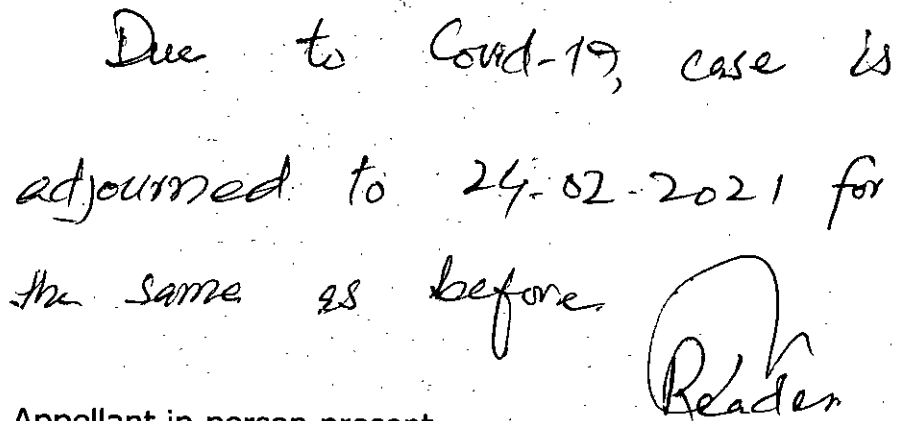 Due to Covid-19, case is
adjourned to 24-02-2021 for
the same as before.
Reader
Appellant in person present